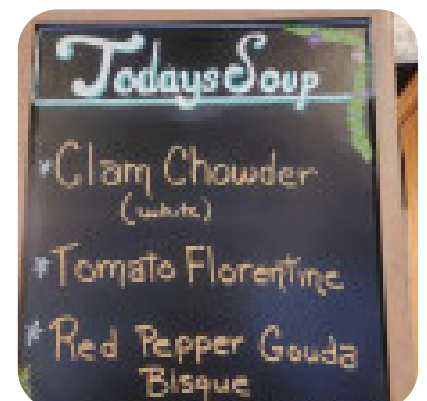 Todays Soup
*Clam Chowder
(white)
*Tomato Florentine
*Red Pepper Gouda
Bisque